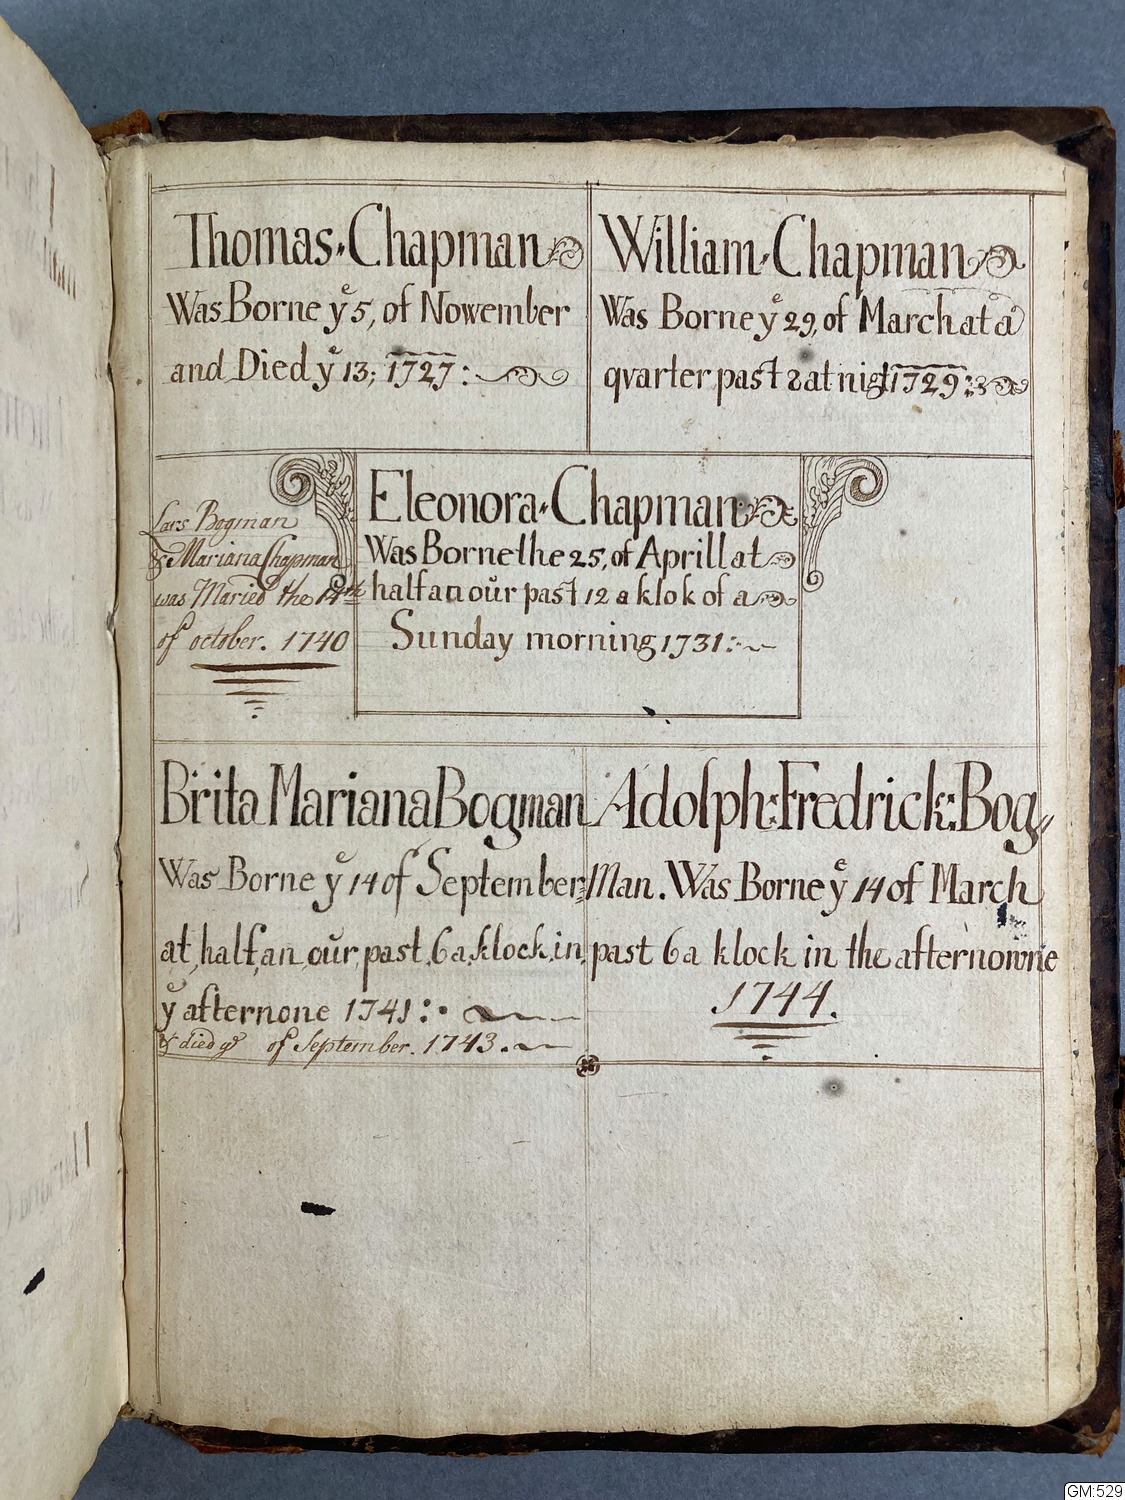 Thomas Chapman
Was Borne yᵉ 5, of Nowember
and Died yᵉ 13; 1727:
William Chapman
Was Borne yᵉ 29, of March at a
qvarter past 2 at nigt 1729:
Lars Bogman
& Mariana Chapman
was Maried the 14th
of october. 1740
Eleonora Chapman
Was Borne the 25, of Aprill at
half an oŭr past 12 a klok of a
Sunday morning 1731:
Brita Mariana Bogman
Was Borne yᵉ 14 of September
at, half, an, oŭr, past, 6 a, klock, in,
yᵉ afternone 1741:
& died yᵉ of September. 1743.
Adolph: Fredrick: Bog
Man. Was Borne yᵉ 14 of March
past 6 a klock in the afternowne
1744.
GM:529